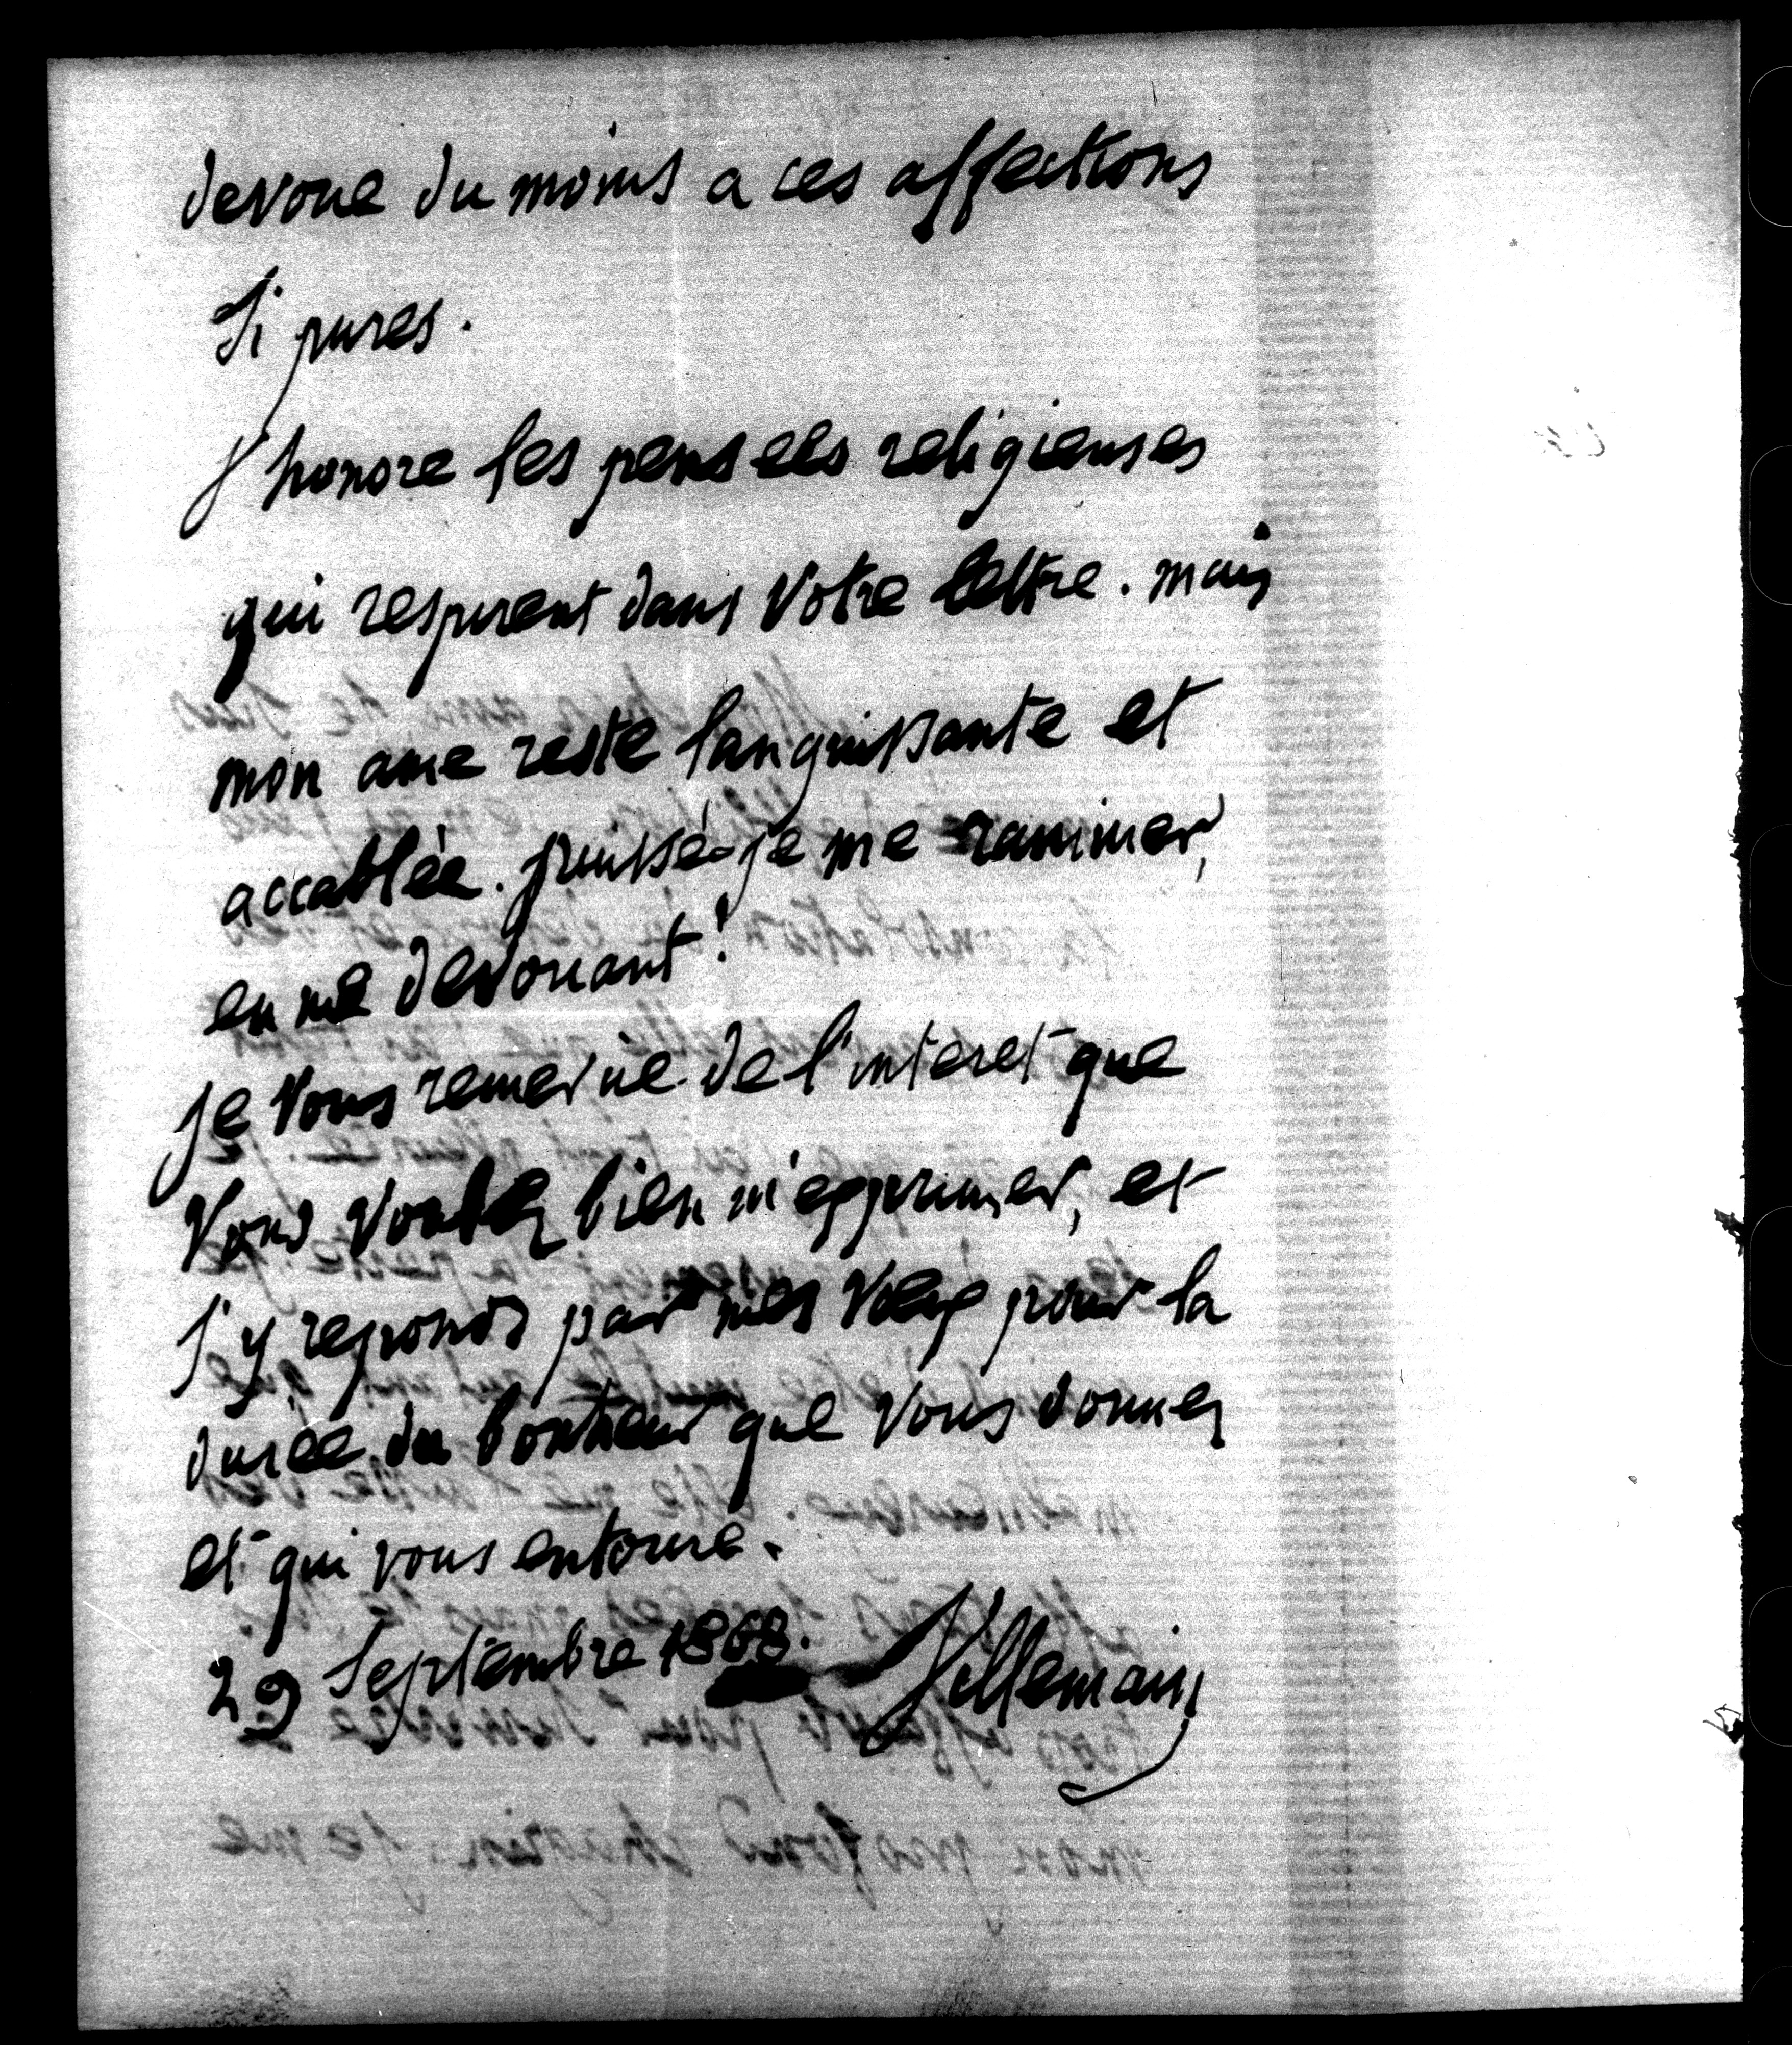 devoue du moins a ces affections
Si pures.
J'honore les pensees religieuses
qui respirent dans Votre lettre. mais
mon ame reste languissante et
accablée. puissé-je me ranimer,
en me devouant!
je Vous remercie de l'interet que
Vous Voulez bien m'exprimer, et
j'y reponds par mes Vœux pour la
durée du bonheur que Vous donnez
et qui vous entoure.
29 Septembre 1868. Villemain